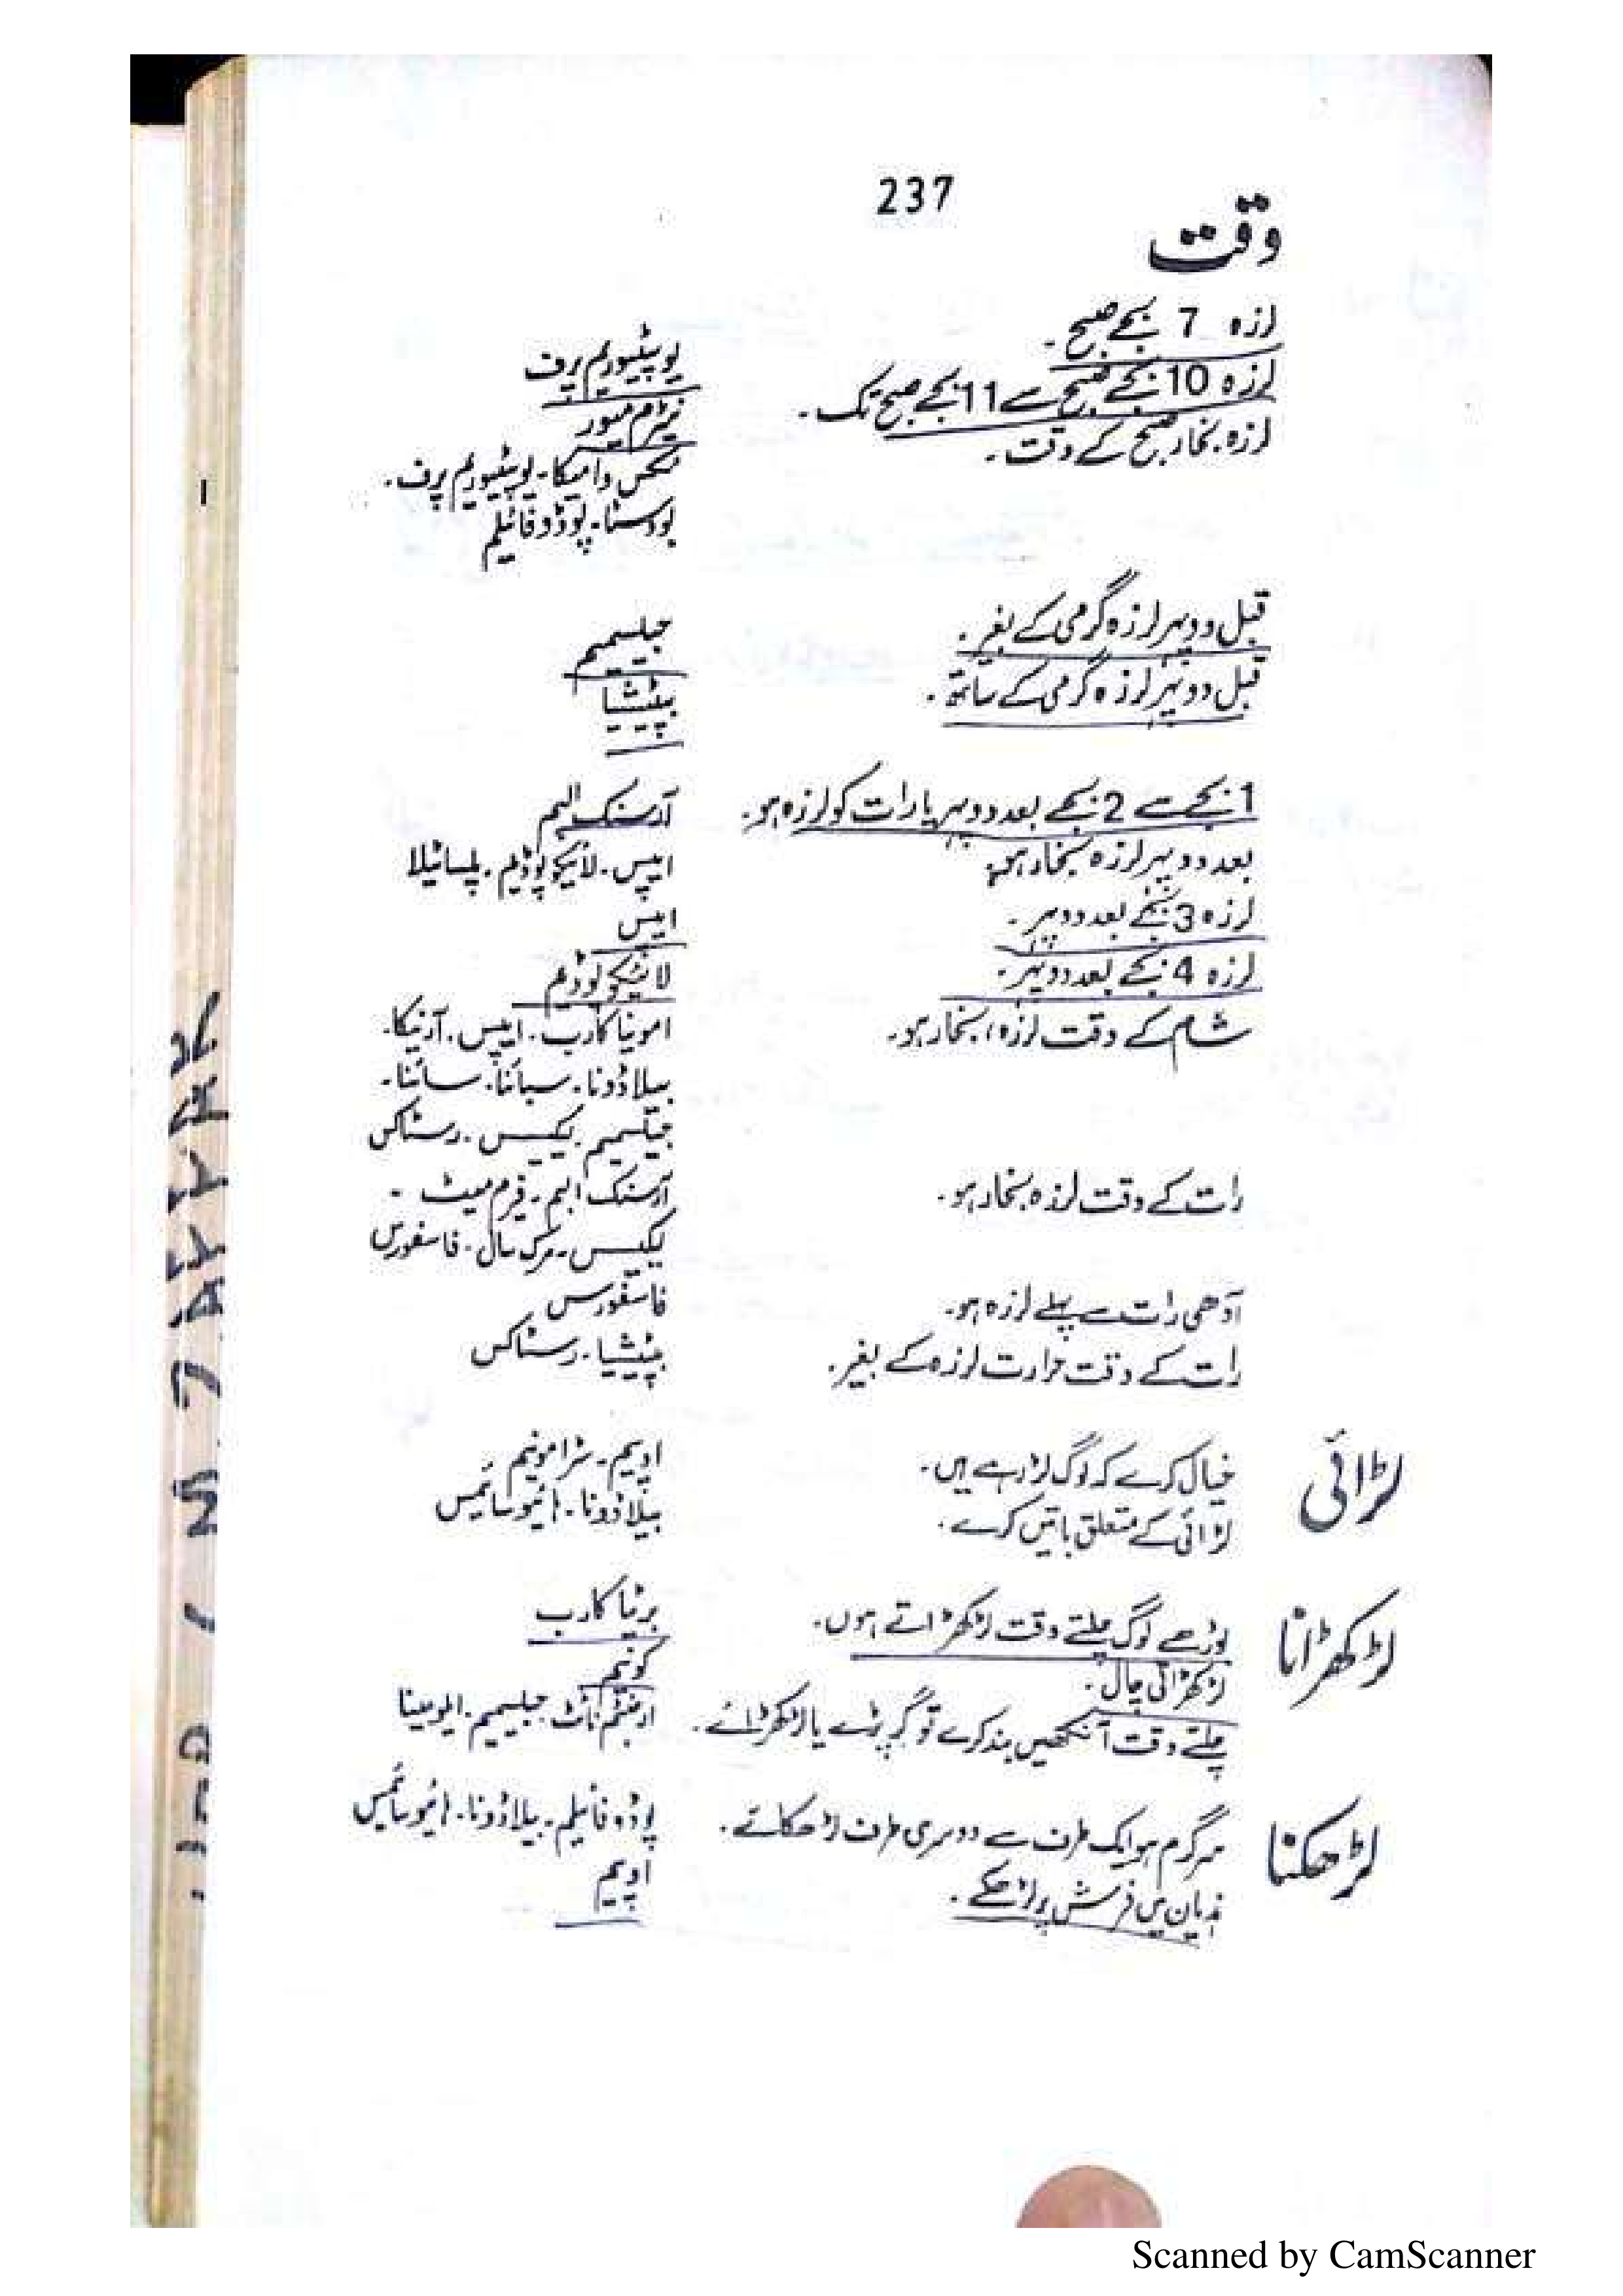 237
وقت
لرزہ 7 بجے صبح۔
یوپیٹوریم پرف
لرزہ 10 بجے صبح سے 11 بجے صبح تک۔
نیٹرم میور
لرزہ بخار صبح کے وقت۔
نکس وامیکا۔ یوپیٹوریم پرف۔
پوڈوفائیلم
قبل دوپہر لرزہ گرمی کے بغیر۔
جیلسیمیم
قبل دوپہر لرزہ گرمی کے ساتھ۔
بپٹیشیا
1 بجے سے 2 بجے بعد دوپہر یا رات کو لرزہ ہو۔
آرسنک البم
بعد دوپہر لرزہ بخار ہو۔
ایپس۔ لائیکوپوڈیم۔ پلساٹیلا
لرزہ 3 بجے بعد دوپہر۔
ایپس
لرزہ 4 بجے بعد دوپہر۔
لائیکوپوڈیم
شام کے وقت لرزہ، بخار ہو۔
امونیا کارب۔ ایپس۔ آرنیکا۔
بیلاڈونا۔ سبائنا۔ سائنا۔
جیلسیمیم۔ لیکیسس۔ رسٹاکس
رات کے وقت لرزہ بخار ہو۔
آرسنک البم۔ فیرم میٹ۔
لیکیسس۔ مرک سال۔ فاسفورس
آدھی رات سے پہلے لرزہ ہو۔
فاسفورس
رات کے وقت حرارت لرزہ کے بغیر۔
بپٹیشیا۔ رسٹاکس
لڑائی
خیال کرے کہ لوگ لڑ رہے ہیں۔
اوپیم۔ سٹرامونیم
لڑائی کے متعلق باتیں کرے۔
بیلاڈونا۔ ہائیوسائمس
لڑکھڑانا
بوڑھے لوگ چلتے وقت لڑکھڑاتے ہوں۔
برٹیا کارب
لڑکھڑاتی چال۔
کونیم
چلتے وقت آنکھیں بند کرے تو گر پڑے یا لڑکھڑائے۔
ارجنٹم نائٹ۔ جیلسیمیم۔ ایلومینا
لڑھکنا
سر گرم ہو ایک طرف سے دوسری طرف لڑھکائے۔
پوڈوفائیلم۔ بیلاڈونا۔ ہائیوسائمس
ہذیان میں فرش پر لڑھکے۔
اوپیم
Scanned by CamScanner